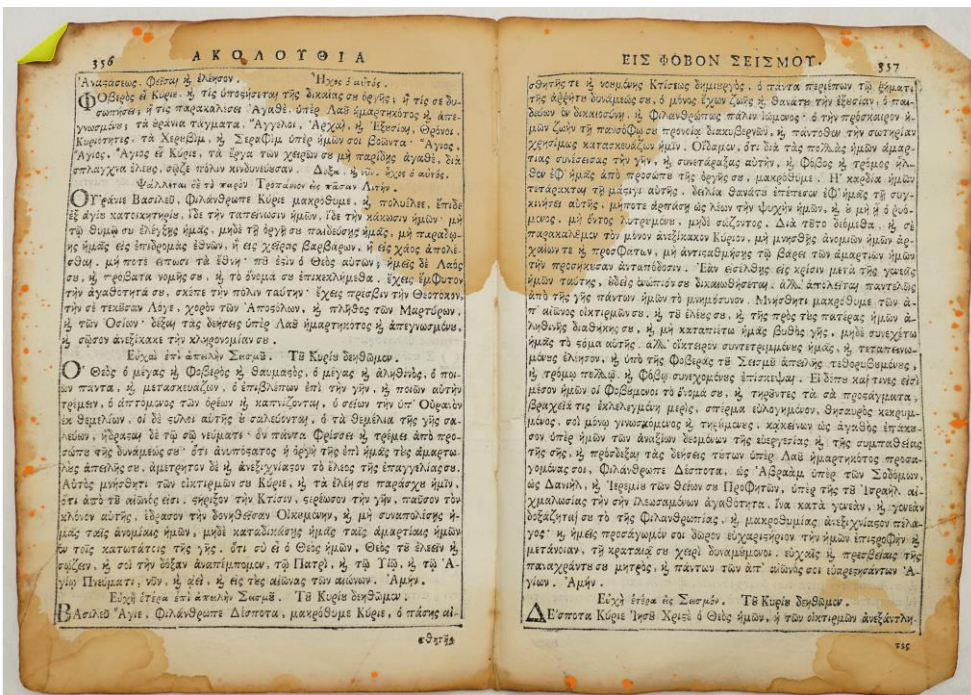 356 ΑΚΟΛΟΥΘΙΑ
Ἀναστάσεως. Φεῖσαι ϗ ἐλέησον. Ἦχος ὁ αὐτός.
ΦΟβερὸς εἶ Κύριε, ϗ τίς ὑποστήσεται τῆς δικαίας σου ὀργῆς; ἢ τίς σε δυ-
σωπήσει; ἢ τις παρακαλέσει Ἀγαθὲ, ὑπὲρ Λαοῦ ἡμαρτηκότος ϗ ἀπε-
γνωσμένου; τὰ οὐράνια τάγματα, Ἄγγελοι, Ἀρχαὶ, ϗ Ἐξουσίαι, Θρόνοι,
Κυριότητες, τὰ Χερουβὶμ, ϗ Σεραφὶμ ὑπὲρ ἡμῶν σοι βοῶντα· Ἅγιος,
Ἅγιος, Ἅγιος εἶ Κύριε, τὰ ἔργα τῶν χειρῶν σου μὴ παρίδῃς ἀγαθὲ, διὰ
σπλάγχνα ἐλέους, σῶζε πόλιν κινδυνεύουσαν. Δόξα. ϗ νῦν. ἦχος ὁ αὐτός.
Ψάλλεται δὲ τὸ παρὸν Τροπάριον εἰς πᾶσαν Λιτήν.
ΟΥράνιε Βασιλεῦ, Φιλάνθρωπε Κύριε μακρόθυμε, ϗ πολυέλεε, ἔπιδε
ἐξ ἁγίου κατοικητηρίου, ἴδε τὴν ταπείνωσιν ἡμῶν, ἴδε τὴν κάκωσιν ἡμῶν· μὴ
τῷ θυμῷ σου ἐλέγξῃς ἡμᾶς, μηδὲ τῇ ὀργῇ σου παιδεύσῃς ἡμᾶς, μὴ παραδῴ-
ης ἡμᾶς εἰς ἐπιδρομὰς ἐθνῶν, ἢ εἰς χεῖρας βαρβάρων, ἢ εἰς χάος ἀπολέ-
σθαι. μή ποτε εἴπωσι τὰ ἔθνη· ποῦ ἐστιν ὁ Θεὸς αὐτῶν; ἡμεῖς δὲ Λαός
σου, ϗ πρόβατα νομῆς σου, ϗ τὸ ὄνομά σου ἐπικεκλήμεθα. ἔχεις ἔμφυτον
τὴν ἀγαθότητά σου, σκέπε τὴν πόλιν ταύτην· ἔχεις πρεσβιν τὴν Θεοτόκον,
τὴν σὲ τεκοῦσαν Λόγε, χορὸν τῶν Ἀποστόλων, ϗ πλῆθος τῶν Μαρτύρων,
ϗ τῶν Ὁσίων· δέξαι τὰς δεήσεις ὑπὲρ Λαοῦ ἡμαρτηκότος ϗ ἀπεγνωσμένου,
ϗ σῶσον ἀνεξίκακε τὴν κληρονομίαν σου.
Εὐχαὶ ἐπὶ ἀπειλὴν Σεισμοῦ. Τοῦ Κυρίου δεηθῶμεν.
Ὁ Θεὸς ὁ μέγας ϗ Φοβερὸς ϗ θαυμαστὸς, ὁ μέγας ϗ ἀληθινὸς, ὁ ποι-
ῶν πάντα, ϗ μετασκευάζων, ὁ ἐπιβλέπων ἐπὶ τὴν γῆν, ϗ ποιῶν αὐτὴν
τρέμειν, ὁ ἁπτόμενος τῶν ὀρέων ϗ καπνίζονται, ὁ σείων τὴν ὑπ' Οὐρανὸν
ἐκ θεμελίων, οἱ δὲ στύλοι αὐτῆς οὐ σαλεύονται, ὁ τὰ θεμέλια τῆς γῆς σα-
λεύων, ἥδρασαι δὲ τῷ σῷ νεύματι· ὃν πάντα Φρίσσει ϗ τρέμει ἀπὸ προ-
σώπου τῆς δυνάμεώς σου· ὅτι ἀνυπόστατος ἡ ὀργὴ τῆς ἐπὶ ἡμᾶς τοὺς ἁμαρτω-
λοὺς ἀπειλῆς σου, ἀμέτρητον δὲ ϗ ἀνεξιχνίαστον τὸ ἔλεος τῆς ἐπαγγελίας σου.
Αὐτὸς μνήσθητι τῶν οἰκτιρμῶν σου Κύριε, ϗ τὰ ἐλέη σου παράσχου ἡμῖν,
ὅτι ἀπὸ τοῦ αἰῶνός εἰσι, στήριξον τὴν Κτίσιν, στερέωσον τὴν γῆν, παῦσον τὸν
κλόνον αὐτῆς, ἕδρασον τὴν δονηθεῖσαν Οἰκουμένην, ϗ μὴ συναπολέσῃς ἡ-
μᾶς ταῖς ἀνομίαις ἡμῶν, μηδὲ καταδικάσῃς ἡμᾶς ταῖς ἁμαρτίαις ἡμῶν
ἐν τοῖς κατωτάτοις τῆς γῆς. ὅτι σὺ εἶ ὁ Θεὸς ἡμῶν, Θεὸς τοῦ ἐλεεῖν ϗ
σῴζειν, ϗ σοὶ τὴν δόξαν ἀναπέμπομεν, τῷ Πατρὶ, ϗ τῷ Υἱῷ, ϗ τῷ Ἁ-
γίῳ Πνεύματι, νῦν, ϗ ἀεὶ, ϗ εἰς τοὺς αἰῶνας τῶν αἰώνων. Ἀμήν.
Εὐχὴ ἑτέρα ἐπὶ ἀπειλὴν Σεισμοῦ. Τοῦ Κυρίου δεηθῶμεν.
ΒΑσιλεῦ Ἅγιε, Φιλάνθρωπε Δέσποτα, μακρόθυμε Κύριε, ὁ πάσης αἰ-
σθητῆς
ΕΙΣ ΦΟΒΟΝ ΣΕΙΣΜΟΥ. 357
σθητῆς τε ϗ νοουμένης Κτίσεως δημιουργὸς, ὁ πάντα περιέπων τῷ ῥήματι,
τῆς ἀρρήτου δυνάμεώς σου, ὁ μόνος ἔχων ζωῆς ϗ θανάτου τὴν ἐξουσίαν, ὁ παι-
δεύων ἐν δικαιοσύνῃ, ϗ Φιλανθρώπως πάλιν ἰώμενος· ὁ τὴν πρόσκαιρον ἡ-
μῶν ζωὴν τῇ πανσόφῳ σου προνοίᾳ διακυβερνῶν, ϗ πάντοθεν τὴν σωτηρίαν
χρησίμως κατασκευάζων ἡμῖν. Οἴδαμεν, ὅτι διὰ τὰς πολλὰς ἡμῶν ἁμαρ-
τίας συνέσεισας τὴν γῆν, ϗ συνετάραξας αὐτὴν, ϗ Φόβος ϗ τρόμος ἦλ-
θεν ἐφ' ἡμᾶς ἀπὸ προσώπου τῆς ὀργῆς σου, μακρόθυμε. Ἡ καρδία ἡμῶν
τετάρακται τῇ μάστιγι αὐτῆς, δειλία θανάτου ἐπέπεσεν ἐφ' ἡμᾶς τῇ συγ-
κινήσει αὐτῆς, μήποτε ἁρπάσῃ ὡς λέων τὴν ψυχὴν ἡμῶν, ϗ οὐ μὴ ᾖ ὁ ῥυό-
μενος, μὴ ὄντος λυτρουμένου, μηδὲ σώζοντος. Διὰ τοῦτο δεόμεθα, ϗ σὲ
παρακαλοῦμεν τὸν μόνον ἀνεξίκακον Κύριον, μὴ μνησθῇς ἀνομιῶν ἡμῶν ἀρ-
χαίων τε ϗ προσφάτων, μὴ ἀντισαθμήσῃς τῷ βάρει τῶν ἁμαρτιῶν ἡμῶν
τὴν προσήκουσαν ἀνταπόδοσιν. Ἐὰν εἰσέλθῃς εἰς κρίσιν μετὰ τῆς γενεᾶς
ἡμῶν ταύτης, οὐδεὶς ἐνώπιόν σου δικαιωθήσεται, ἀλλ' ἀπολεῖται παντελῶς
ἀπὸ τῆς γῆς πάντων ἡμῶν τὸ μνημόσυνον. Μνήσθητι μακρόθυμε τῶν ἀ-
π' αἰῶνος οἰκτιρμῶν σου, ϗ τοῦ ἐλέους σου, ϗ τῆς πρὸς τοὺς πατέρας ἡμῶν ἀ-
ληθινῆς διαθήκης σου, ϗ μὴ καταπιέτω ἡμᾶς βυθὸς γῆς, μηδὲ συνεχέτω
ἡμᾶς τὸ στόμα αὐτῆς, ἀλλ' οἴκτειρον συντετριμμένους ἡμᾶς, ϗ τεταπεινω-
μένους ἐλέησον, ϗ ὑπὸ τῆς Φοβερᾶς τοῦ Σεισμοῦ ἀπειλῆς τεθορυβημένους, ϗ
τρόμῳ πολλῷ, ϗ Φόβῳ συνεχομένους ἐπίσκεψαι. Εἰ δέπου καί τινες εἰσὶ
μέσον ἡμῶν οἱ Φοβούμενοι τὸ ὄνομά σου, ϗ τηροῦντες τὰ σὰ προστάγματα,
βραχεῖά τις ἐκλελεγμένη μερὶς, σπέρμα εὐλογημένον, θησαυρὸς κεκρυμ-
μένος, σοὶ μόνῳ γινωσκόμενος ϗ τηρούμενος, κἀκείνων ὡς ἀγαθὸς ἐπάκου-
σον ὑπὲρ ἡμῶν τῶν ἀναξίων δεομένων τῆς εὐεργεσίας ϗ τῆς συμπαθείας
τῆς σῆς, ϗ πρόσδεξαι τὰς δεήσεις τούτων ὑπὲρ Λαοῦ ἡμαρτηκότος προσα-
γομένας σοι, Φιλάνθρωπε Δέσποτα, ὡς Ἀβραὰμ ὑπὲρ τῶν Σοδόμων,
ὡς Δανιὴλ, ϗ Ἱερεμίου τῶν θείων σου Προφητῶν, ὑπὲρ τῆς τοῦ Ἰσραὴλ αἰ-
χμαλωσίας τὴν σὴν ἱλεωσαμένων ἀγαθότητα. ἵνα κατὰ γενεὰν, ϗ γενεὰν
δοξάζηταί σου τὸ τῆς Φιλανθρωπίας, ϗ μακροθυμίας ἀνεξιχνίαστον πέλα-
γος· ϗ ἡμεῖς προσάγωμέν σοι δῶρον εὐχαριστήριον τὴν ἡμῶν ἐπιστροφὴν ϗ
μετάνοιαν, τῇ κραταιᾷ σου χειρὶ δυναμούμενοι. εὐχαῖς ϗ πρεσβείαις τῆς
παναχράντου σου μητρὸς, ϗ πάντων τῶν ἀπ' αἰῶνός σοι εὐαρεστησάντων Ἁ-
γίων. Ἀμήν.
Εὐχὴ ἑτέρα εἰς Σεισμόν. Τοῦ Κυρίου δεηθῶμεν.
ΔΕσποτα Κύριε Ἰησοῦ Χριστὲ ὁ Θεὸς ἡμῶν, ἡ τῶν οἰκτιρμῶν ἀνεξάντλη-
τος